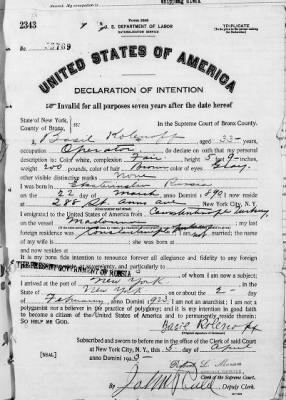 Form 2203
2343
U. S. DEPARTMENT OF LABOR
NATURALIZATION SERVICE
TRIPLICATE
No.
UNITED STATES OF AMERICA
DECLARATION OF INTENTION
Invalid for all purposes seven years after the date hereof
State of New York,
County of Bronx.
ss:
In the Supreme Court of Bronx County.
I, Basil Rolenoff, aged 33 years,
occupation Operator, do declare on oath that my personal
description is: Color white, complexion Fair, height 5 feet 9 inches,
weight 200 pounds, color of hair Brown, color of eyes Gray
other visible distinctive marks None
I was born in Russia
on the 22 day of March, anno Domini 1890; I now reside
at 288 St. Anns Ave, New York City, N. Y.
I emigrated to the United States of America from Constantinople Turkey
on the vessel Madonna; my last
foreign residence was Constantinople Turkey; I am not married; the name
of my wife is; she was born at
and now resides at
It is my bona fide intention to renounce forever all allegiance and fidelity to any foreign
THE PRESENT GOVERNMENT OF RUSSIA, of whom I am now a subject;
I arrived at the port of New York, in the
State of New York, on or about the 2 day
of February, anno Domini 1923; I am not an anarchist; I am not a
polygamist nor a believer in the practice of polygamy; and it is my intention in good faith
to become a citizen of the United States of America and to permanently reside therein:
SO HELP ME GOD.
Basil Rolenoff
Subscribed and sworn to before me in the office of the Clerk of said Court
at New York City, N. Y., this 3 day of April
[SEAL]
anno Domini 1923
Moran
Clerk of the Supreme Court.
By, Deputy Clerk.